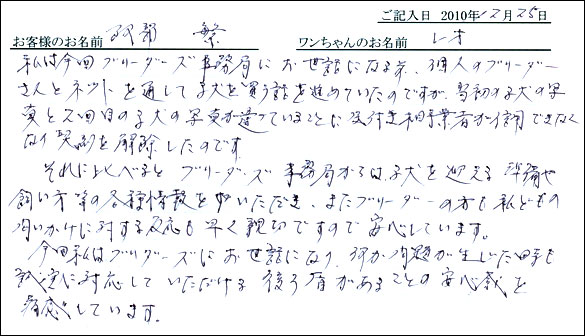 ご記入日 2010年12月25日
お客様のお名前 阿部 繁 ワンちゃんのお名前 レオ
私は今回ブリーダーズ事務局にお世話になる前、個人のブリーダー
さんとネットを通して子犬を買う話を進めていたのですが、当初の子犬の写
真と2回目の子犬の写真が違っていることに気付き相手業者が信用できなく
なり契約を解除したのです。
それにくらべるとブリーダーズ事務局からは、子犬を迎える準備や
飼い方等の各種情報を いただき、またブリーダーの方も私どもの
問いかけに対する反応も早く親切ですので安心しています。
今回私はブリーダーズにお世話になり、何か問題が生じた時も
誠実に対応していただける後う盾があることの安心感を
痛感しています。